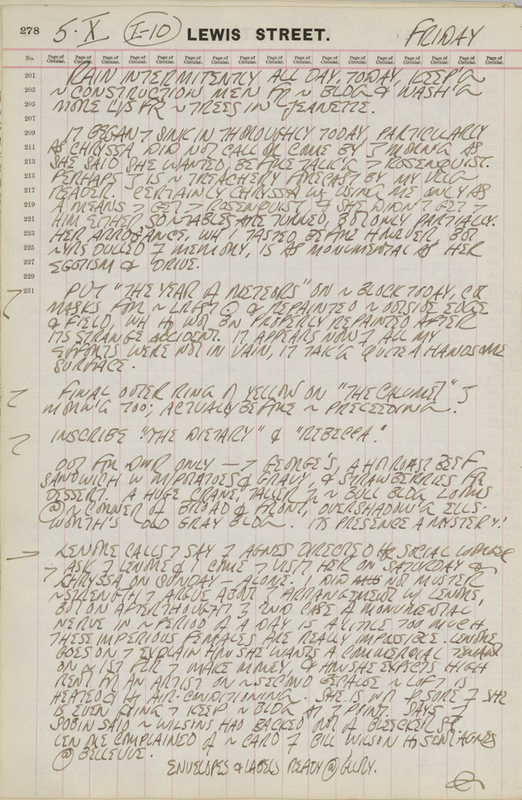 278 5·X I-10 LEWIS STREET. FRIDAY
No. Page of Circular. Page of Circular. Page of Circular. Page of Circular. Page of Circular. Page of Circular. Page of Circular. Page of Circular. Page of Circular. Page of Circular. Page of Circular. Page of Circular. Page of Circular. Page of Circular. Page of Circular. Page of Circular.
201 RAIN INTERMITENTLY ALL DAY, TODAY, KEEP'G
203 ~ CONSTRUCTION MEN FR ~ BLDG & WASH'G
205 MORE LVS FR ~ TREES IN JEANETTE.
207
209 IT BEGAN T SINK IN THOROUGHLY TODAY, PARTICULARLY
211 AS CHRYSSA DID NOT CALL OR COME BY T MORNG AS
213 SHE SAID SHE WANTED, BEFORE TALK'G T ROSENQUIST.
215 PERHAPS T IS ~ TREACHERY FORECAST BY MY
217 READER CERTAINLY CHRYSSA W USING ME ONLY AS
219 A MEANS T GET T ROSENQUIST & SHE DIDN'T GET
221 HIM EITHER SO TABLES ARE TURNED, BUT ONLY PARTIALLY.
223 HER ARROGANCE, WH I TASTED BEFORE HOWEVER BUT
225 ~ YRS DULLED T MEMORY, IS AS MONUMENTAL AS HER
227 EGOTISM & DRIVE.
229
231 PUT "THE YEAR OF METEORS" ON ~ BLOCK TODAY, CUT
MASKS FOR ~ & REPAINTED ~ OUTSIDE EDGE
& FIELD, WH H NOT BN PROPERLY REPAINTED AFTER
ITS STRANGE ACCIDENT. IT APPEARS NOW T ALL MY
EFFORTS WERE NOT IN VAIN, IT TAK'G QUITE A HANDSOME
SURFACE.
FINAL OUTER RING OF YELLOW ON "THE CALUMET" T
MORN'G TOO; ACTUALLY BEFORE ~ PRECEEDING.
INSCRIBE "THE DIETARY" & "REBECCA."
OUT FOR DNR ONLY — T GEORGE'S, A H ROAST BEEF
SANDWICH W M POTATOES & GRAVY, & STRAWBERRIES FR
DESSERT. A HUGE CRANE, TALLER T ~ BULL BLDG LOOMS
@ ~ CORNER OF BROAD & FRONT, OVERSHADOW'G ELLS-
WORTH'S OLD GRAY BLDG. ITS PRESENCE A MYSTERY!
LENORE CALLS T SAY T AGNES DIRECTED HR SOCIAL WORKER
T ASK T LENORE & I COME T VISIT HER ON SATURDAY &
CHRYSSA ON SUNDAY — ALONE. I DID NOT MUSTER
~ STRENGTH T ARGUE ABOUT T ARRANGEMENT W LENORE,
BUT ON AFTERTHOUGHT T 2ND CASE OF MONUMENTAL
NERVE IN ~ PERIOD OF A DAY IS A LITTLE TOO MUCH
THESE IMPERIOUS FEMALES ARE REALLY IMPOSSIBLE. LENORE
GOES ON T EXPLAIN HOW SHE WANTS A COMMERCIAL TENANT
ON ~ 1ST FLR T MAKE MONEY, & HOW SHE EXPECTS HIGH
RENT FOR AN ARTIST ON ~ SECOND BECAUSE ~ LOFT IS
HEATED & H AIR-CONDITIONING. SHE IS NOT SURE T SHE
IS EVEN GOING T KEEP ~ BLDG AT T POINT. SAYS T
SOBIN SAID ~ WILSONS HAD BACKED OUT OF BLEECKER ST.
LENORE COMPLAINED OF ~ CARD T BILL WILSON H SENT AGNES
@ BELLEVUE.
ENVELOPES & LABELS READY @